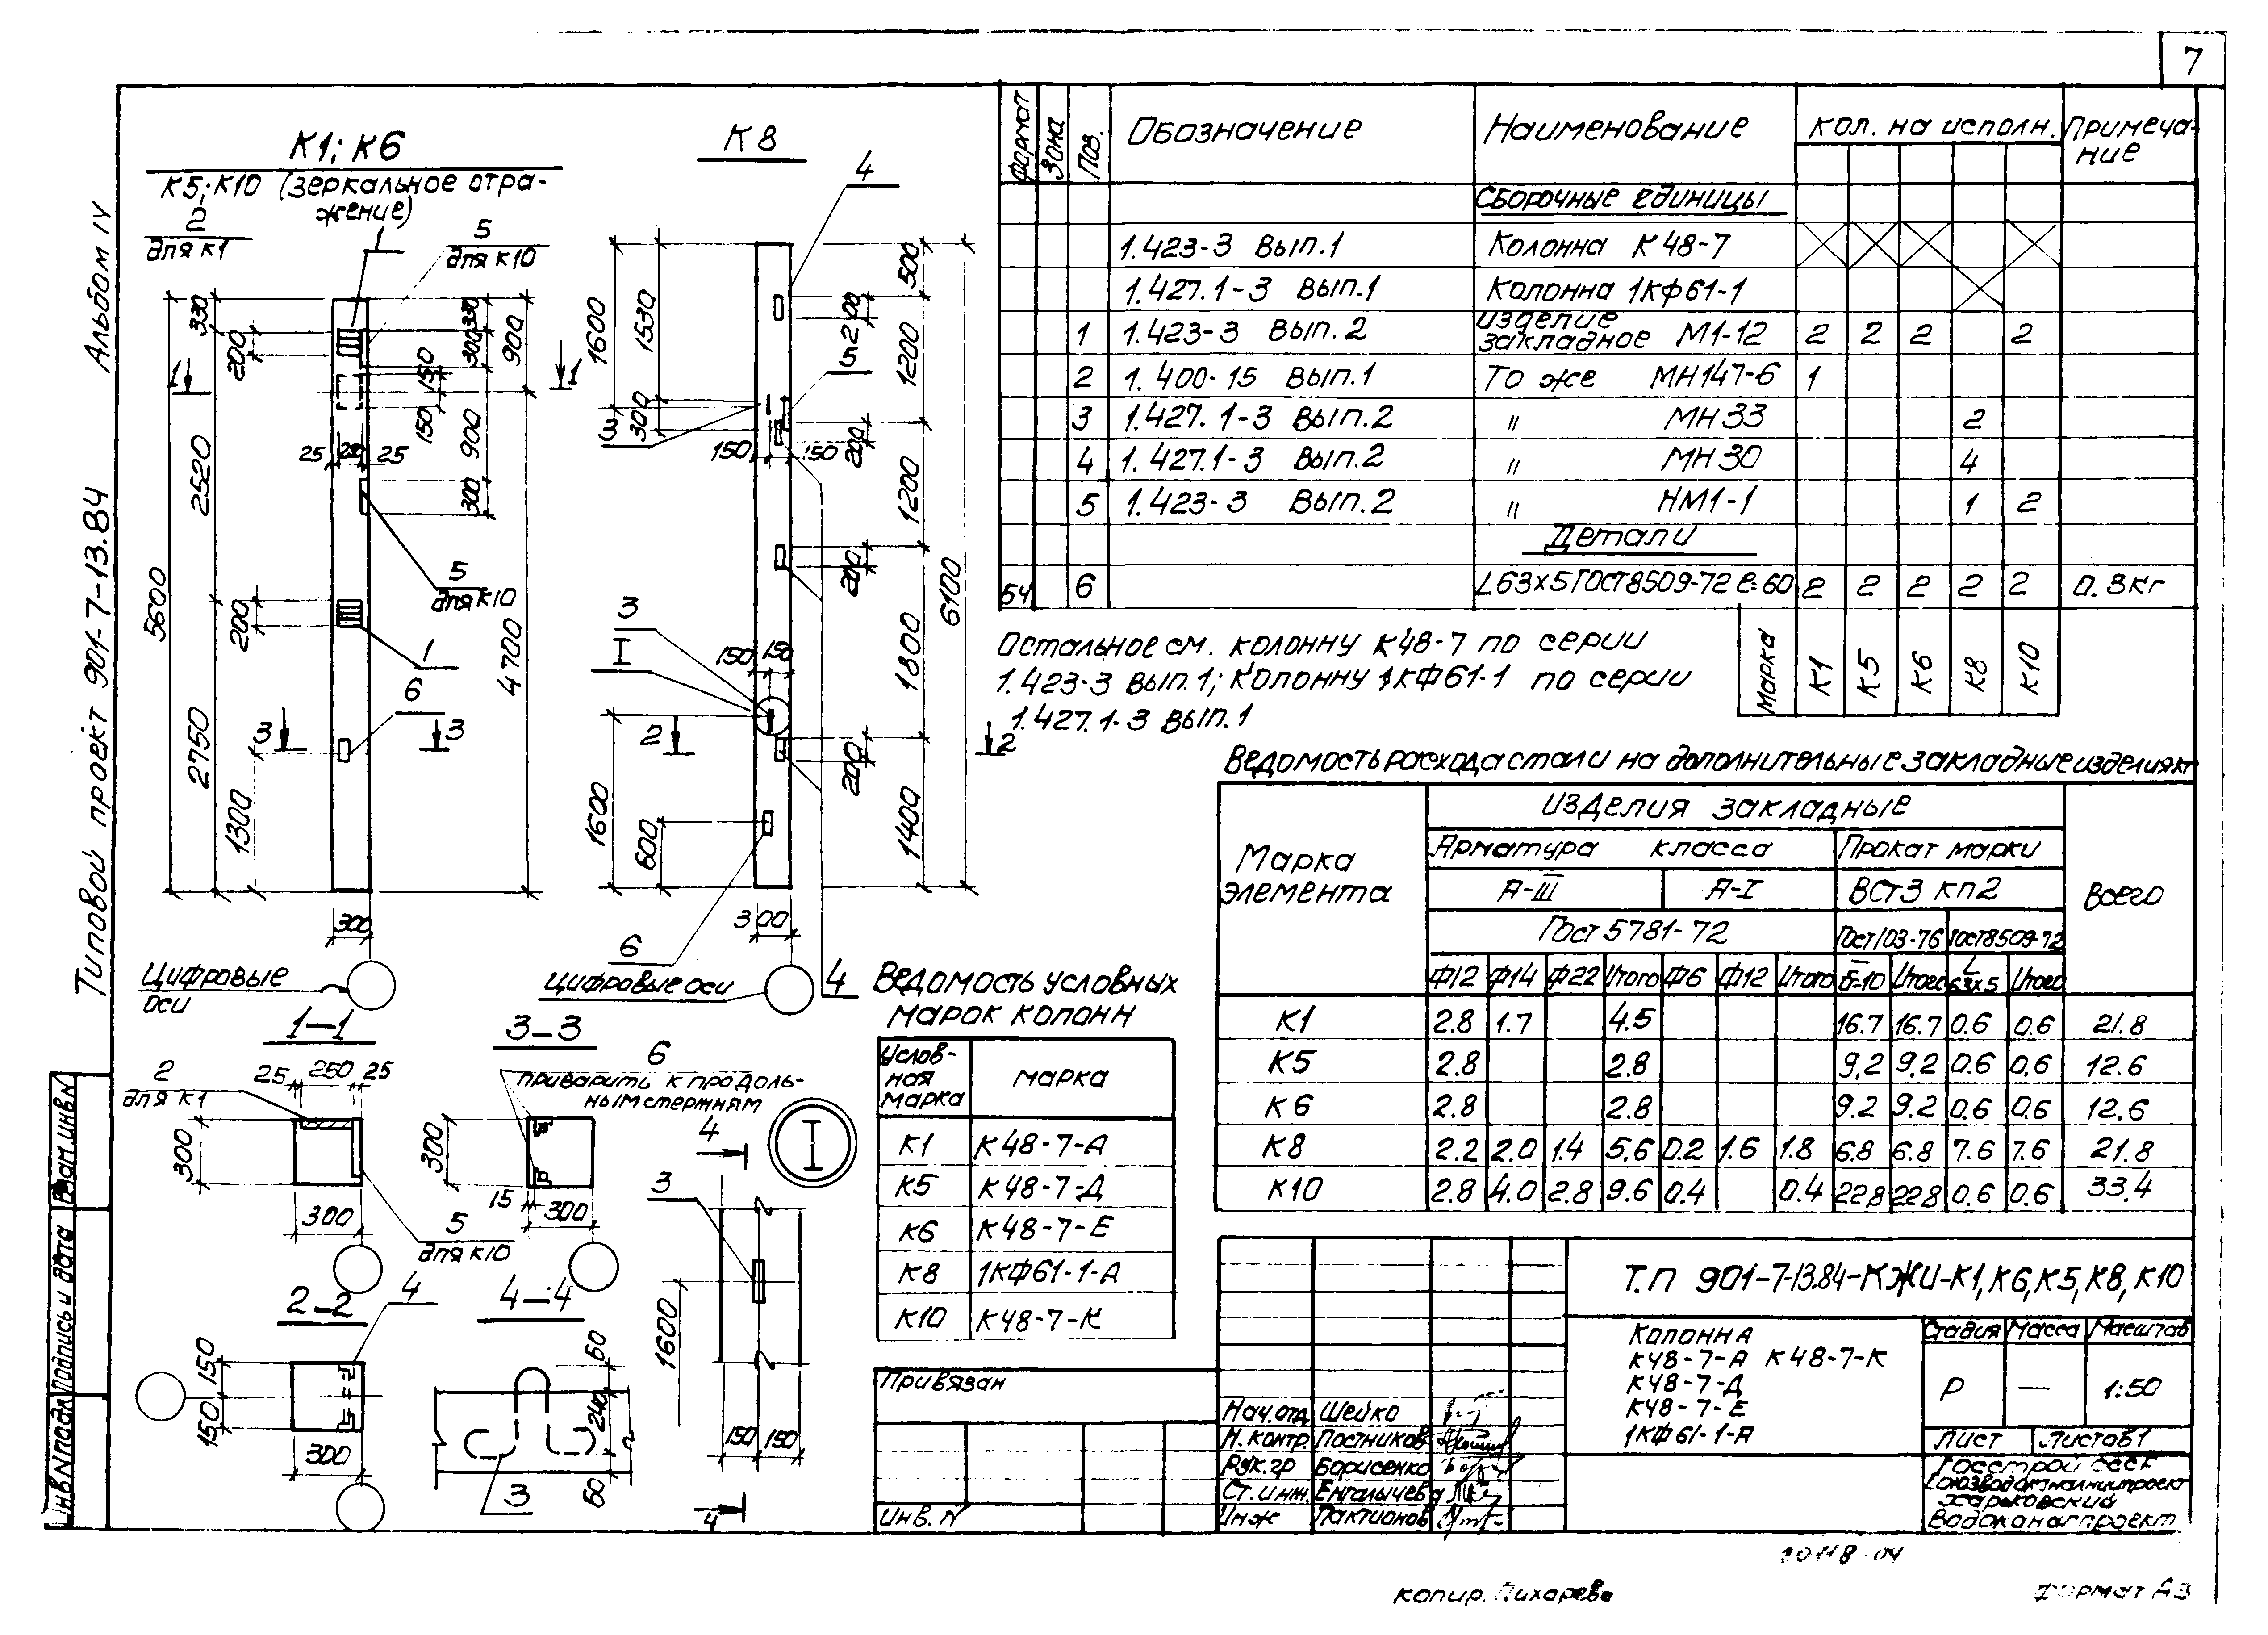 7
Альбом IV
Типовой проект 901-7-13.84
Взам.инв.N
Подпись и дата
Инв.Nподл
К1; К6
К5; К10 (зеркальное отра-
жение)
2
для К1
1
5
для К10
330
200
330
300
900
150
150
900
300
1
1
25
250
25
2520
5600
2750
200
4700
5
для К10
1
6
3
3
1300
300
Цифровые
оси
К8
4
1600
1530
500
200
1200
5
300
3
150
150
200
1200
200
3
I
150
150
6100
1800
2
2
200
1600
600
1400
300
6
4
Цифровые оси
1-1
2
для К1
25
250
25
300
300
5
для К10
3-3
6
приварить к продоль-
ным стержням
300
15
300
I
4
3
1600
150
150
4
2-2
4
150
150
300
4-4
60
240
60
3
Формат
Зона
Поз.
Обозначение
Наименование
Кол. на исполн.
Примеча-
ние
Сборочные единицы
1.423-3 Вып.1 Колонна К48-7
1.427.1-3 Вып.1 Колонна 1КФ61-1
изделие
1 1.423-3 Вып.2 закладное М1-12 2 2 2 2
2 1.400-15 Вып.1 То же МН147-6 1
3 1.427.1-3 Вып.2 " МН33 2
4 1.427.1-3 Вып.2 " МН30 4
5 1.423-3 Вып.2 " НМ1-1 1 2
Детали
БЧ 6 L63х5 ГОСТ8509-72 ℓ=60 2 2 2 2 2 0.3кг
Марка К1 К5 К6 К8 К10
Остальное см. колонну К48-7 по серии
1.423-3 вып.1; Колонну 1КФ61-1 по серии
1.427.1-3 вып.1
Ведомость расхода стали на дополнительные закладные изделия кг
Марка
элемента
Изделия закладные
Всего
Арматура класса
Прокат марки
А-III
А-I
ВСт3 кп2
Гост 5781-72
Гост103-76
Гост8509-72
Ф12 Ф14 Ф22 Итого Ф6 Ф12 Итого δ=10 Итого L63х5 Итого
К1 2.8 1.7 4.5 16.7 16.7 0.6 0.6 21.8
К5 2.8 2.8 9.2 9.2 0.6 0.6 12.6
К6 2.8 2.8 9.2 9.2 0.6 0.6 12.6
К8 2.2 2.0 1.4 5.6 0.2 1.6 1.8 6.8 6.8 7.6 7.6 21.8
К10 2.8 4.0 2.8 9.6 0.4 0.4 22.8 22.8 0.6 0.6 33.4
Ведомость условных
марок колонн
Услов-
ная
марка
марка
К1 К48-7-А
К5 К48-7-Д
К6 К48-7-Е
К8 1КФ61-1-А
К10 К48-7-К
Привязан
Инв. N
Т.П 901-7-13.84-КЖИ-К1,К6,К5,К8,К10
Колонна
К48-7-А К48-7-К
К48-7-Д
К48-7-Е
1КФ61-1-А
Стадия Масса Масштаб
Р — 1:50
Лист Листов 1
Госстрой СССР
Союзводоканалниипроект
Харьковский
Водоканалпроект
Нач.отд Шейко
Н.контр. Постников
Рук.гр Борисенко
Ст.инж. Енгалычева
Инж Пактионов
20118-04
копир. Лихарева
формат А3